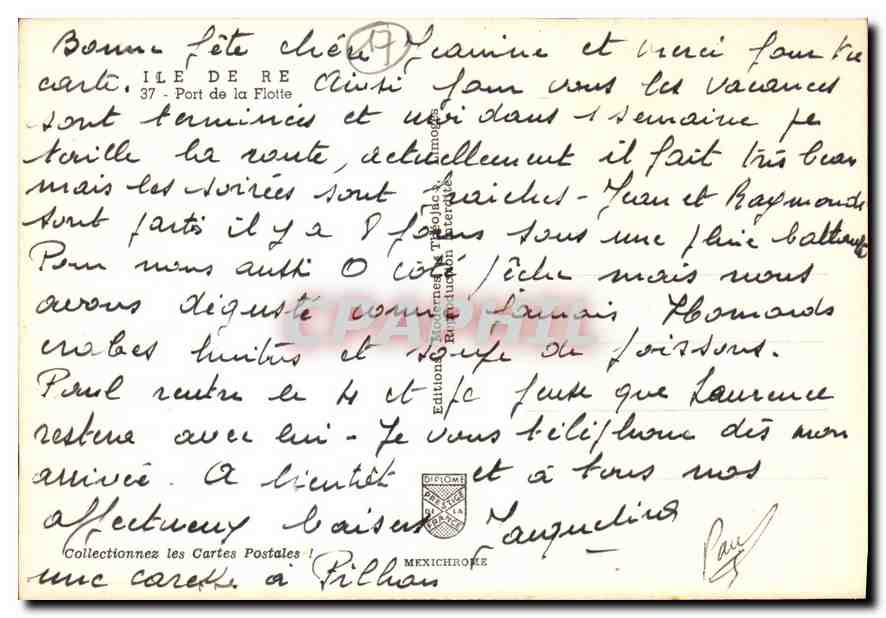 Bonne fête chère Jeanine et merci pour ta
17
carte. Ainsi pour vous les vacances
ILE DE RE
37 - Port de la Flotte
sont terminées et moi dans 1 semaine je
la route, actuellement il fait très beau
mais les soirées sont fraiches - Jean et Raymonde
sont partis il y a 8 jours sous une pluie battante
Pour nous aussi 0 côté pêche mais nous
avons dégusté comme jamais Homards
crabes huitres et soupe de poissons.
Paul rentre le 4 et je pense que Laurence
restera avec lui - Je vous téléphone dès mon
arrivée. A bientôt et à tous nos
affectueux baisers Jacqueline
Paul
une caresse à
Editions Modernes Théojac, Limoges
Reproduction Interdite
DIPLOME
PRESTIGE
DE LA
FRANCE
Collectionnez les Cartes Postales !
MEXICHROME
CPAPHIL